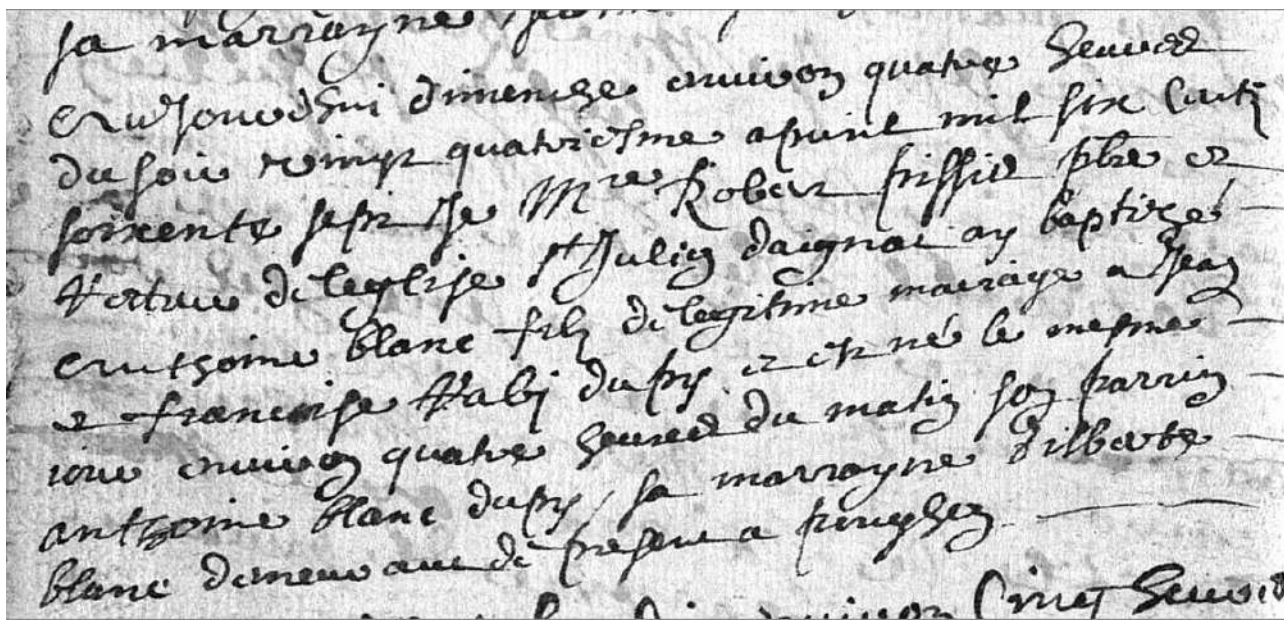 sa marrayne
aujourdhui dimenche environ quatre heures
du soir vingt quatriesme apvril mil six cents
soixente sept Je Mre Robert prbre et
de leglise st Julien daignat ay baptizé
anthoine blanc filz de legitime mariage a Jean
et francoise du puy et est né le mesme
iour environ quatre heures du matin son parrin
anthoine blanc du puy, sa marrayne Gilberte
blanc demeurant de present a
cinct heures